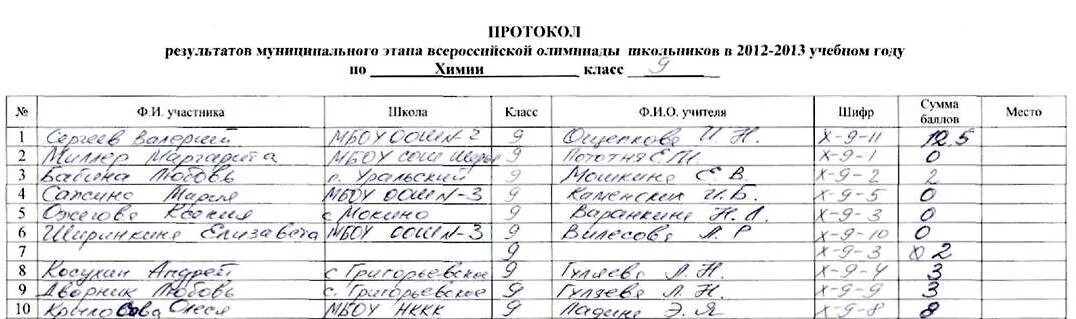 ПРОТОКОЛ
результатов муниципального этапа всероссийской олимпиады школьников в 2012-2013 учебном году
по Химии класс 9
№ Ф.И. участника Школа Класс Ф.И.О. учителя Шифр Сумма баллов Место
1 Сергеев Валерий МБОУ ООШ N-2 9 Ощепкова И. Н. Х-9-11 12.5
2 Миллер Маргарита МБОУ СОШ 9 Х-9-1 0
3 Бабина Любовь п. Уральский 9 Мошкина С. В. Х-9-2 2
4 Мария МБОУ ООШ N-3 9 Каменских И.Б. Х-9-5 0
5 Ожегова Ксения с Мокино 9 Варанкина Н. Х-9-3 0
6 Ширинкина Елизавета МБОУ ООШ N-3 9 Вилесова Л. Р Х-9-10 0
7 9 Х-9-3 2
8 Косухин Андрей с Григорьевское 9 Гуляева Л. Н. Х-9-4 3
9 Дворник Любовь с. Григорьевское 9 Гуляева Л. Н. Х-9-9 3
10 Олеся МБОУ НККК 9 Э. Я Х-9-8 8